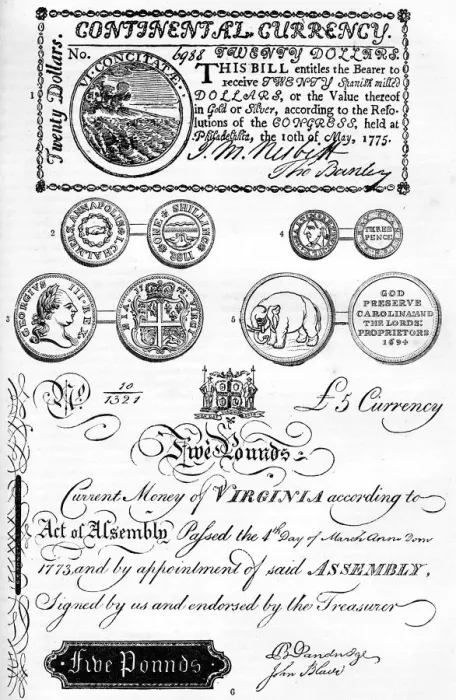 CONTINENTAL CURRENCY.
Twenty Dollars.
No. 6988 TWENTY DOLLARS.
VI CONCITATÆ
THIS BILL entitles the Bearer to
receive TWENTY Spanish milled
DOLLARS, or the Value thereof
in Gold or Silver, according to the Reso-
lutions of the CONGRESS, held at
Philadelphia, the 10th of May, 1775.
J. M. Nesbitt
Tho Barclay
1
2
I. CHALMERS, ANNAPOLIS
ONE SHILLING
4
THREE
PENCE
3
GEORGIVS III REX
5
GOD
PRESERVE
CAROLINA AND
THE LORDS
PROPRIETORS
1694
No 10
1321
£5 Currency
Five Pounds
Current Money of VIRGINIA according to
Act of Assembly Passed the 4th Day of March Ann Dom
1773, and by appointment of said ASSEMBLY,
Signed by us and endorsed by the Treasurer
Five Pounds
John Blair
6